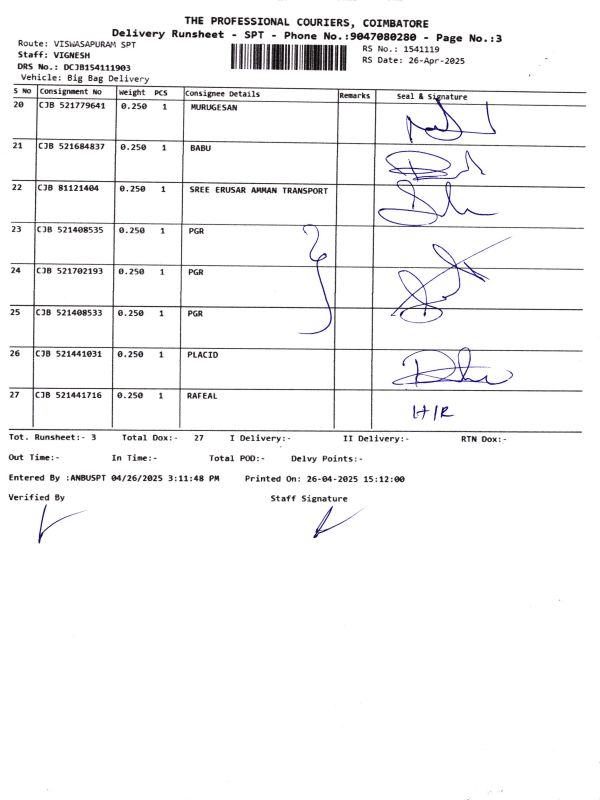 THE PROFESSIONAL COURIERS, COIMBATORE
Delivery Runsheet - SPT - Phone No.:9047080280 - Page No.:3
Route: VISWASAPURAM SPT
RS No.: 1541119
Staff: VIGNESH
RS Date: 26-Apr-2025
DRS No.: DCJB154111903
Vehicle: Big Bag Delivery
S No Consignment No Weight PCS Consignee Details Remarks Seal & Signature
20 CJB 521779641 0.250 1 MURUGESAN
21 CJB 521684837 0.250 1 BABU
22 CJB 81121404 0.250 1 SREE ERUSAR AMMAN TRANSPORT
23 CJB 521408535 0.250 1 PGR
24 CJB 521702193 0.250 1 PGR
25 CJB 521408533 0.250 1 PGR
26 CJB 521441031 0.250 1 PLACID
27 CJB 521441716 0.250 1 RAFEAL H/R
Tot. Runsheet:- 3 Total Dox:- 27 I Delivery:- II Delivery:- RTN Dox:-
Out Time:- In Time:- Total POD:- Delvy Points:-
Entered By :ANBUSPT 04/26/2025 3:11:48 PM Printed On: 26-04-2025 15:12:00
Verified By Staff Signature